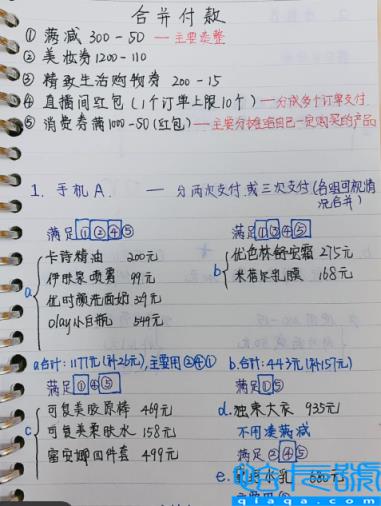 合并付款
① 满减 300-50 — 主要凑整
② 美妆券 1200-110
③ 精致生活购物券 200-15
④ 直播间红包(1个订单上限10个) — 分成多个订单支付
⑤ 消费券满1000-50(红包) — 主要分摊给自己一定购买的产品
1. 手机A. — 分两次支付或三次支付(各组可视情况合并)
满足①②④⑤
a
卡诗精油 200元
伊肤泉喷雾 99元
优时颜洗面奶 349元
olay小白瓶 549元
满足①③④⑤
b
优色林舒安霜 275元
米蓓尔乳膜 168元
a合计:1177元(补26元),主要用②④①
b.合计:443元(补157元)
满足①④⑤
c
可复美胶原棒 469元
可复美柔肤水 158元
富安娜四件套 499元
满足①⑤
d. 独来大衣 935元
不用凑满减
满足②④⑤
e.
水乳 680元